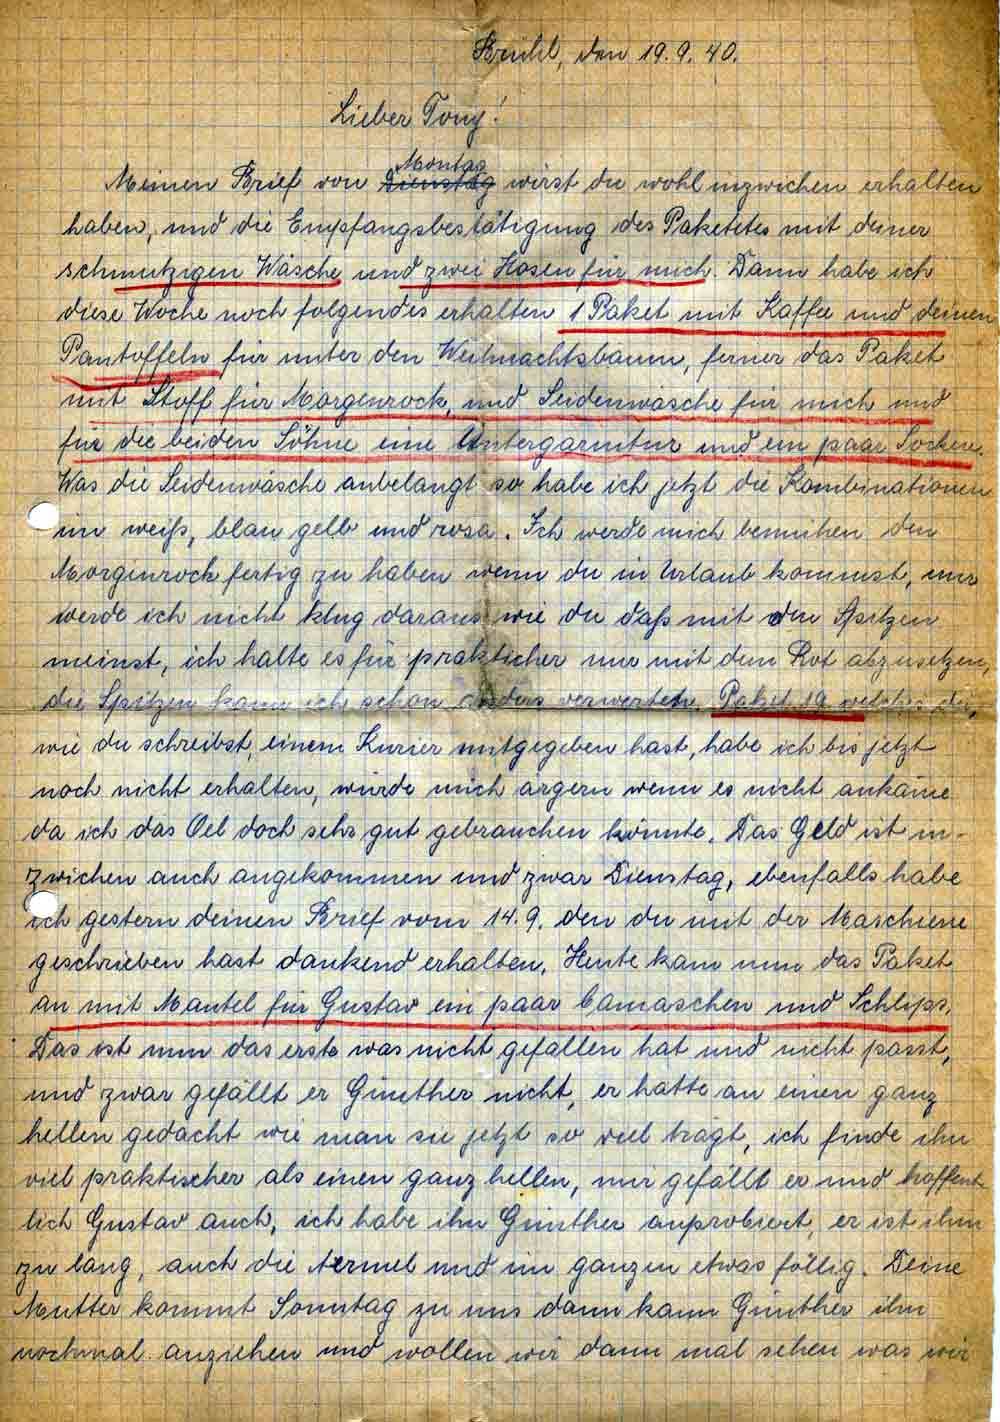 Brühl, den 19.9.40.
Lieber Tony!
Montag
Meinen Brief von Dienstag wirst du wohl inzwichen erhalten
haben, und die Empfangsbestätigung des Paketetes mit deiner
schmutzigen Wäsche und zwei Hosen für mich. Dann habe ich
diese Woche noch folgendes erhalten 1 Paket mit Kaffee und deinen
Pantoffeln für unter den Weihnachtsbaum, ferner das Paket
mit Stoff für Morgenrock, und Seidenwäsche für mich und
für die beiden Söhne eine Untergarnitur und ein paar Socken.
Was die Seidenwäsche anbelangt so habe ich jetzt die Kombinationen
in weiß, blau gelb und rosa. Ich werde mich bemühen den
Morgenrock fertig zu haben wenn du in Urlaub kommst, nur
werde ich nicht klug daraus wie du daß mit den Spitzen
meinst, ich halte es für prakticher nur mit dem Rot abzusetzen,
die Spitzen kann ich schon anders verwerten. Paket 19 welches du,
wie du schreibst, einem Kurier mitgegeben hast, habe ich bis jetzt
noch nicht erhalten, würde mich ärgern wenn es nicht ankäme
da ich das Oel doch sehr gut gebrauchen könnte. Das Geld ist in-
zwichen auch angekommen und zwar Dienstag, ebenfalls habe
ich gestern deinen Brief vom 14.9. den du mit der Maschiene
geschrieben hast dankend erhalten. Heute kam nun das Paket
an mit Mantel für Gustav ein paar Camaschen und Schlips.
Das ist nun das erste was nicht gefallen hat und nicht passt,
und zwar gefällt er Günther nicht, er hatte an einen ganz
hellen gedacht wie man sie jetzt so viel trägt, ich finde ihn
viel praktischer als einen ganz hellen, mir gefällt er und hoffent-
lich Gustav auch, ich habe ihn Günther anprobiert, er ist ihm
zu lang, auch die Aermel und im ganzen etwas föllig. Deine
Mutter kommt Sonntag zu uns dann kann Günther ihn
nochmal anziehen und wollen wir dann mal sehen was wir